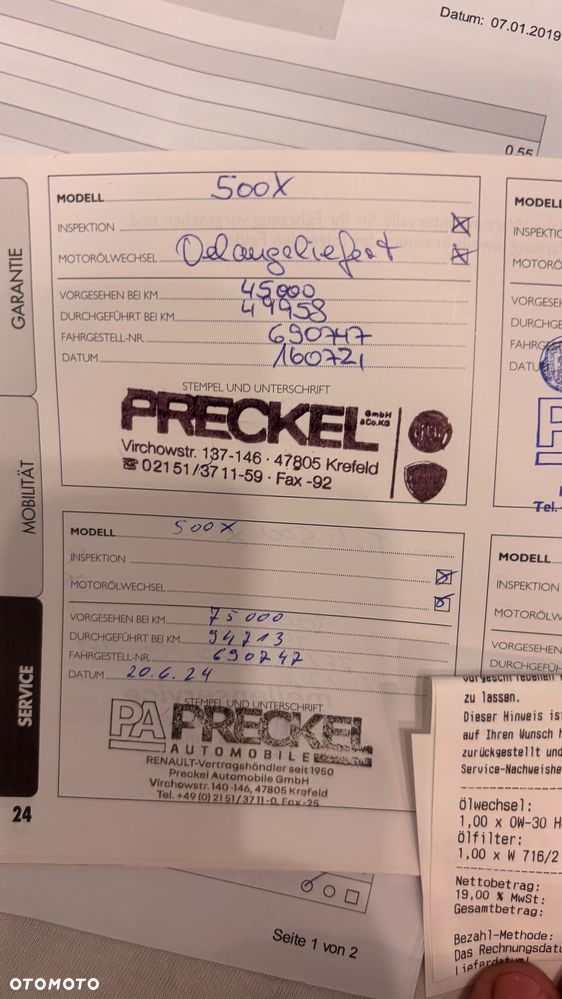 Datum: 07.01.2019
0,55
GARANTIE
MOBILITÄT
SERVICE
24
MODELL 500X
INSPEKTION
MOTORÖLWECHSEL Oel angeliefert
VORGESEHEN BEI KM 45000
DURCHGEFÜHRT BEI KM 49958
FAHRGESTELL-NR. 690747
DATUM 160721
STEMPEL UND UNTERSCHRIFT
PRECKEL GmbH & Co.KG
Virchowstr. 137-146 · 47805 Krefeld
☎ 02151/3711-59 · Fax -92
MODELL 500X
INSPEKTION
MOTORÖLWECHSEL
VORGESEHEN BEI KM 75000
DURCHGEFÜHRT BEI KM 94713
FAHRGESTELL-NR. 690747
DATUM 20.6.24
STEMPEL UND UNTERSCHRIFT
PA PRECKEL
AUTOMOBILE
RENAULT-Vertragshändler seit 1950
Preckel Automobile GmbH
Virchowstr. 140-146, 47805 Krefeld
Tel. +49 (0) 2151/3711-0, Fax -25
MODELL
INSPEKTIO
MOTORÖ
VORGESEH
DURCHGE
FAHRGE
DATU
Tel.
MODELL
INSPEKTION
MOTORÖLW
VORGESEHEN
DURCHGEFÜH
vorgeschriebenen
zu lassen.
Dieser Hinweis ist
auf Ihren Wunsch
zurückgestellt und
Service-Nachweishe
Ölwechsel:
1,00 x 0W-30
Ölfilter:
1,00 x W 716/2
Nettobetrag:
19,00 % MwSt:
Gesamtbetrag:
Bezahl-Methode:
Das Rechnungsdatu
Lieferdatum!
Seite 1 von 2
OTOMOTO